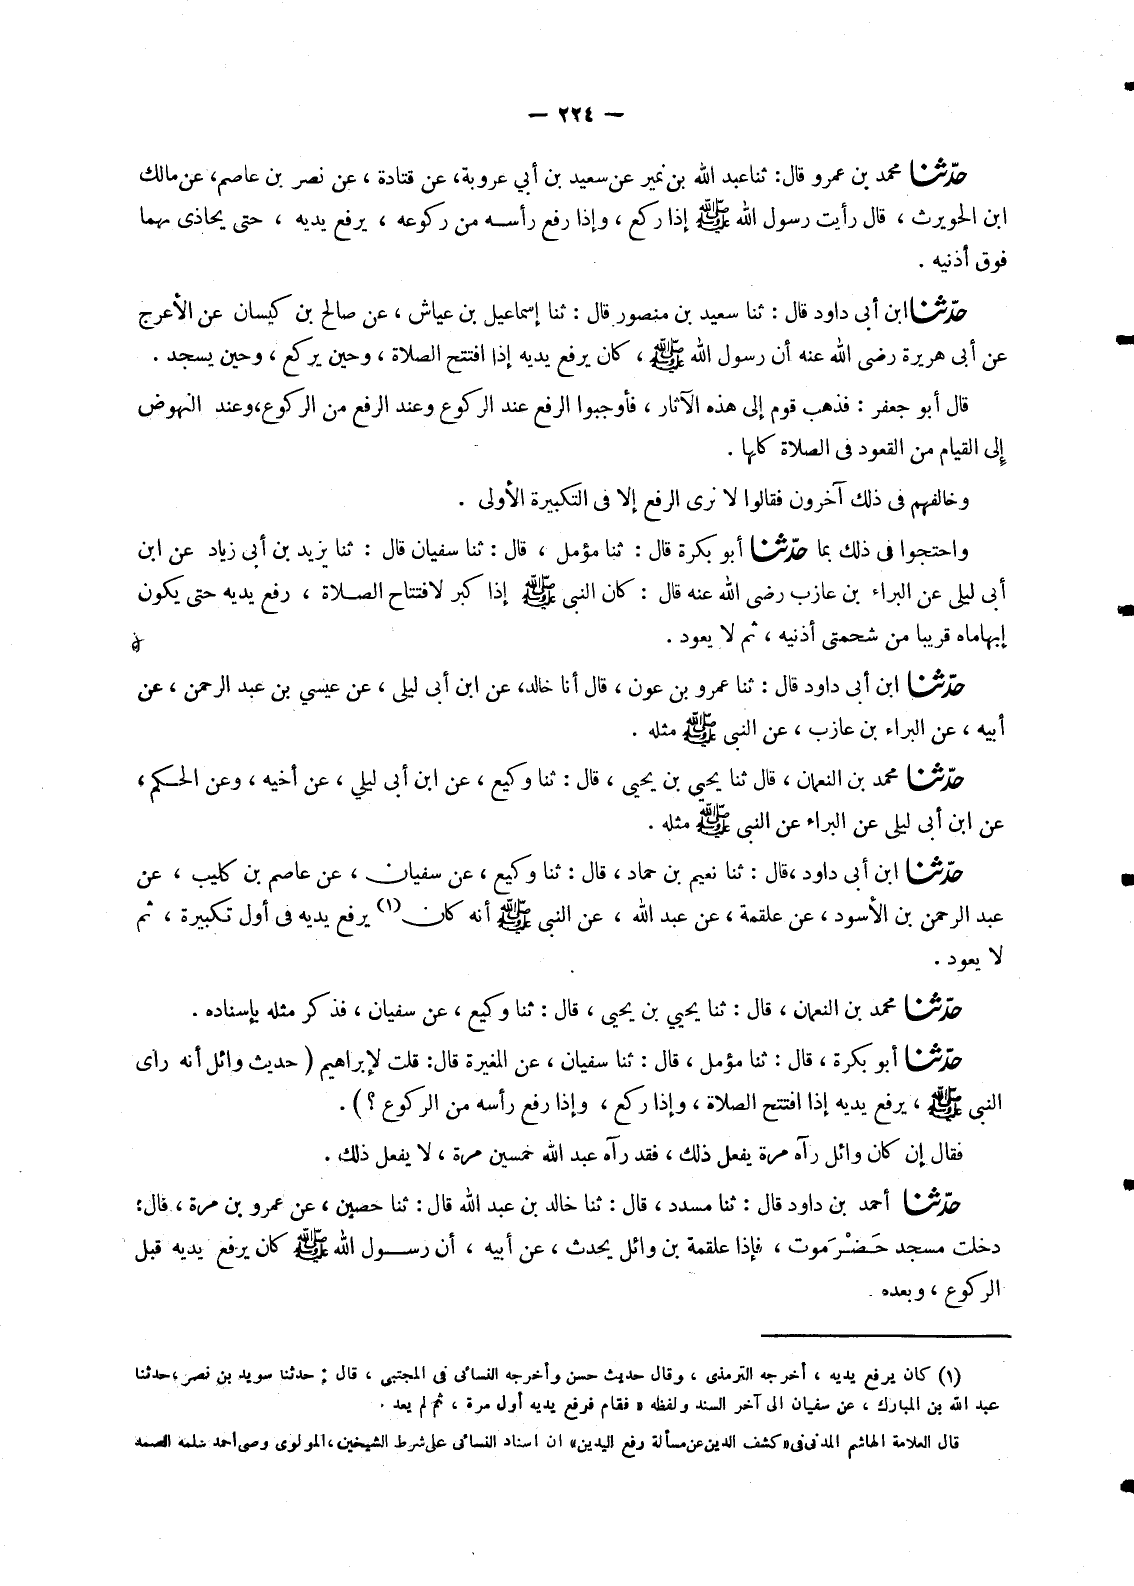 — ٢٢٤ —
حدّثنا محمد بن عمرو قال: ثنا عبد الله بن نمير عن سعيد بن أبي عروبة، عن قتادة ، عن نصر بن عاصم، عن مالك
ابن الحويرث ، قال رأيت رسول الله ﷺ إذا ركع ، وإذا رفع رأسه من ركوعه ، يرفع يديه ، حتى يحاذى بهما
فوق أذنيه .
حدّثنا ابن أبى داود قال : ثنا سعيد بن منصور قال : ثنا إسماعيل بن عياش ، عن صالح بن كيسان عن الأعرج
عن أبى هريرة رضى الله عنه أن رسول الله ﷺ ، كان يرفع يديه إذا افتتح الصلاة ، وحين يركع ، وحين يسجد .
قال أبو جعفر : فذهب قوم إلى هذه الآثار ، فأوجبوا الرفع عند الركوع وعند الرفع من الركوع،وعند النهوض
إلى القيام من القعود فى الصلاة كلها .
وخالفهم فى ذلك آخرون فقالوا لا نرى الرفع إلا فى التكبيرة الأولى .
واحتجوا فى ذلك بما حدّثنا أبو بكرة قال : ثنا مؤمل ، قال : ثنا سفيان قال : ثنا يزيد بن أبى زياد عن ابن
أبى ليلى عن البراء بن عازب رضى الله عنه قال : كان النبى ﷺ إذا كبر لافتتاح الصلاة ، رفع يديه حتى يكون
إبهاماه قريبا من شحمتى أذنيه ، ثم لا يعود .
حدّثنا ابن أبى داود قال : ثنا عمرو بن عون ، قال أنا خالد، عن ابن أبى ليلى ، عن عيسي بن عبد الرحمن ، عن
أبيه ، عن البراء بن عازب ، عن النبى ﷺ مثله .
حدّثنا محمد بن النعمان ، قال ثنا يحيي بن يحيى ، قال : ثنا وكيع ، عن ابن أبى ليلي ، عن أخيه ، وعن الحكم ،
عن ابن أبى ليلى عن البراء عن النبى ﷺ مثله .
حدّثنا ابن أبى داود ،قال : ثنا نعيم بن حماد ، قال : ثنا وكيع ، عن سفيان ، عن عاصم بن كليب ، عن
عبد الرحمن بن الأسود ، عن علقمة ، عن عبد الله ، عن النبى ﷺ أنه كان (١) يرفع يديه فى أول تكبيرة ، ثم
لا يعود .
حدّثنا محمد بن النعمان ، قال : ثنا يحيي بن يحيى ، قال : ثنا وكيع ، عن سفيان ، فذكر مثله بإسناده .
حدّثنا أبو بكرة ، قال : ثنا مؤمل ، قال : ثنا سفيان ، عن المغيرة قال: قلت لإبراهيم ( حديث وائل أنه رأى
النبى ﷺ ، يرفع يديه إذا افتتح الصلاة ، وإذا ركع ، وإذا رفع رأسه من الركوع ؟ ) .
فقال إن كان وائل رآه مرة يفعل ذلك ، فقد رآه عبد الله خمسين مرة ، لا يفعل ذلك .
حدّثنا أحمد بن داود قال : ثنا مسدد ، قال : ثنا خالد بن عبد الله قال : ثنا حصين ، عن عمرو بن مرة ، قال :
دخلت مسجد حَضْرَموت ، فإذا علقمة بن وائل يحدث ، عن أبيه ، أن رسول الله ﷺ كان يرفع يديه قبل
الركوع ، وبعده .
(١) كان يرفع يديه ، أخرجه الترمذى ، وقال حديث حسن وأخرجه النسائى فى المجتبى ، قال : حدثنا سويد بن نصر ،حدثنا
عبد الله بن المبارك ، عن سفيان الى آخر السند ولفظه « فقام فرفع يديه أول مرة ، ثم لم يعد .
قال العلامة الهاشم المدنى فى «كشف الدين عن مسألة رفع اليدين» ان اسناد النسائى على شرط الشيخين ، المولوى وصى أحمد سلمه الصمد